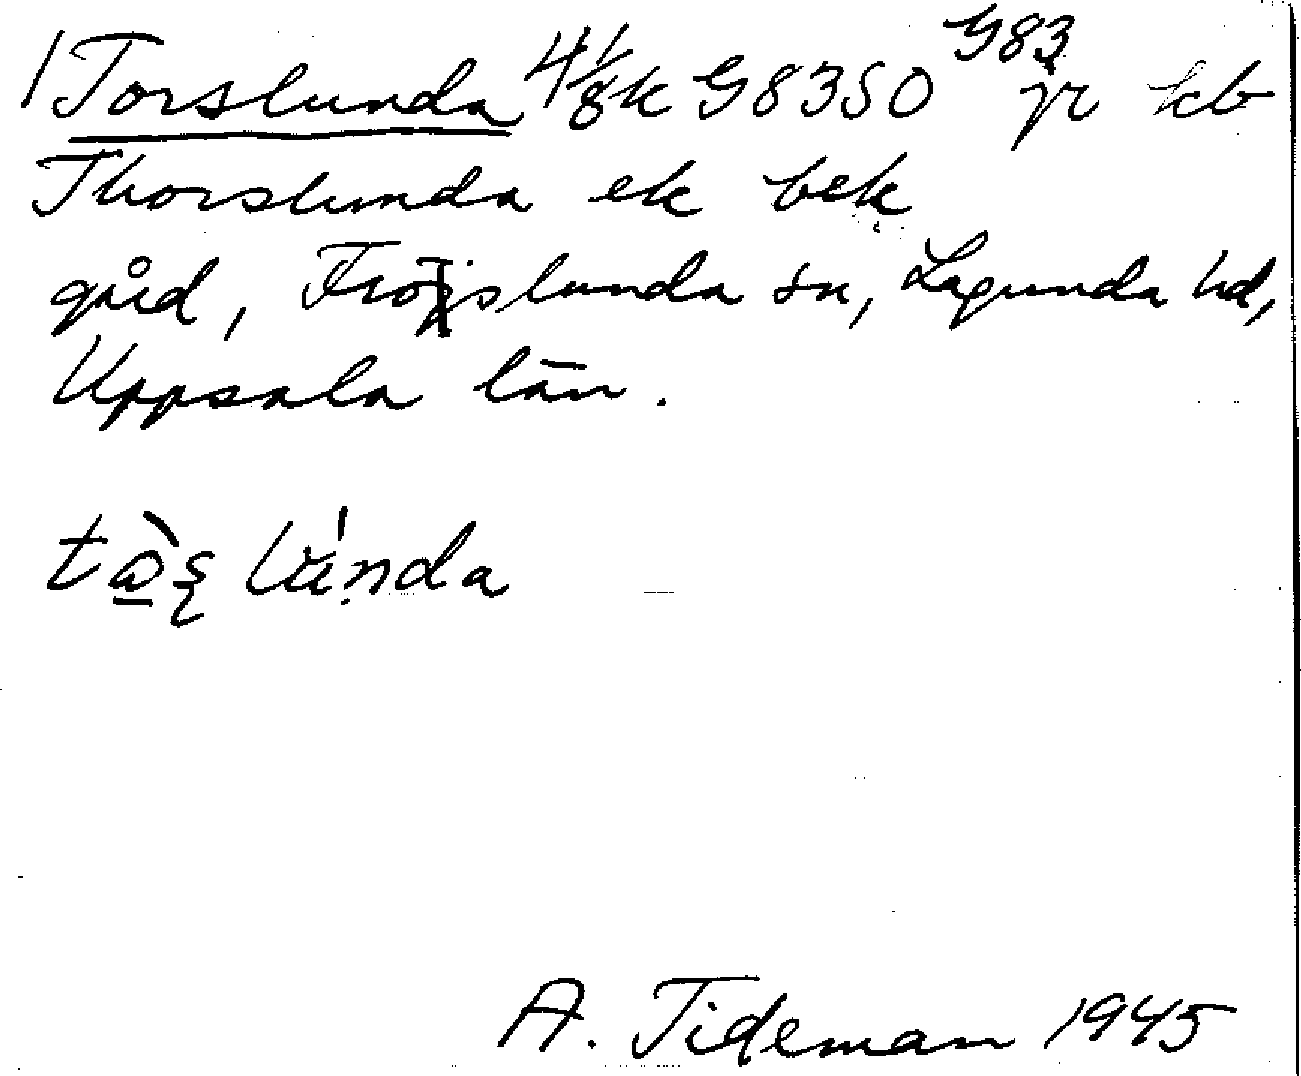 1 Torslunda 4 1/8 k G8350 G83 jr kb
Thorslunda ek bek
gård, Fröslunda sn, Lagunda hd,
Uppsala län.
A. Tideman 1945